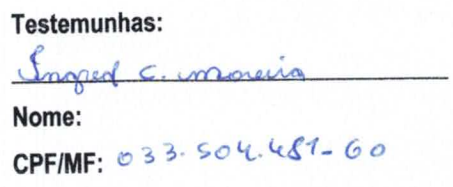 Testemunhas:
Ingred C. Moreira
Nome:
CPF/MF: 033.504.481-60